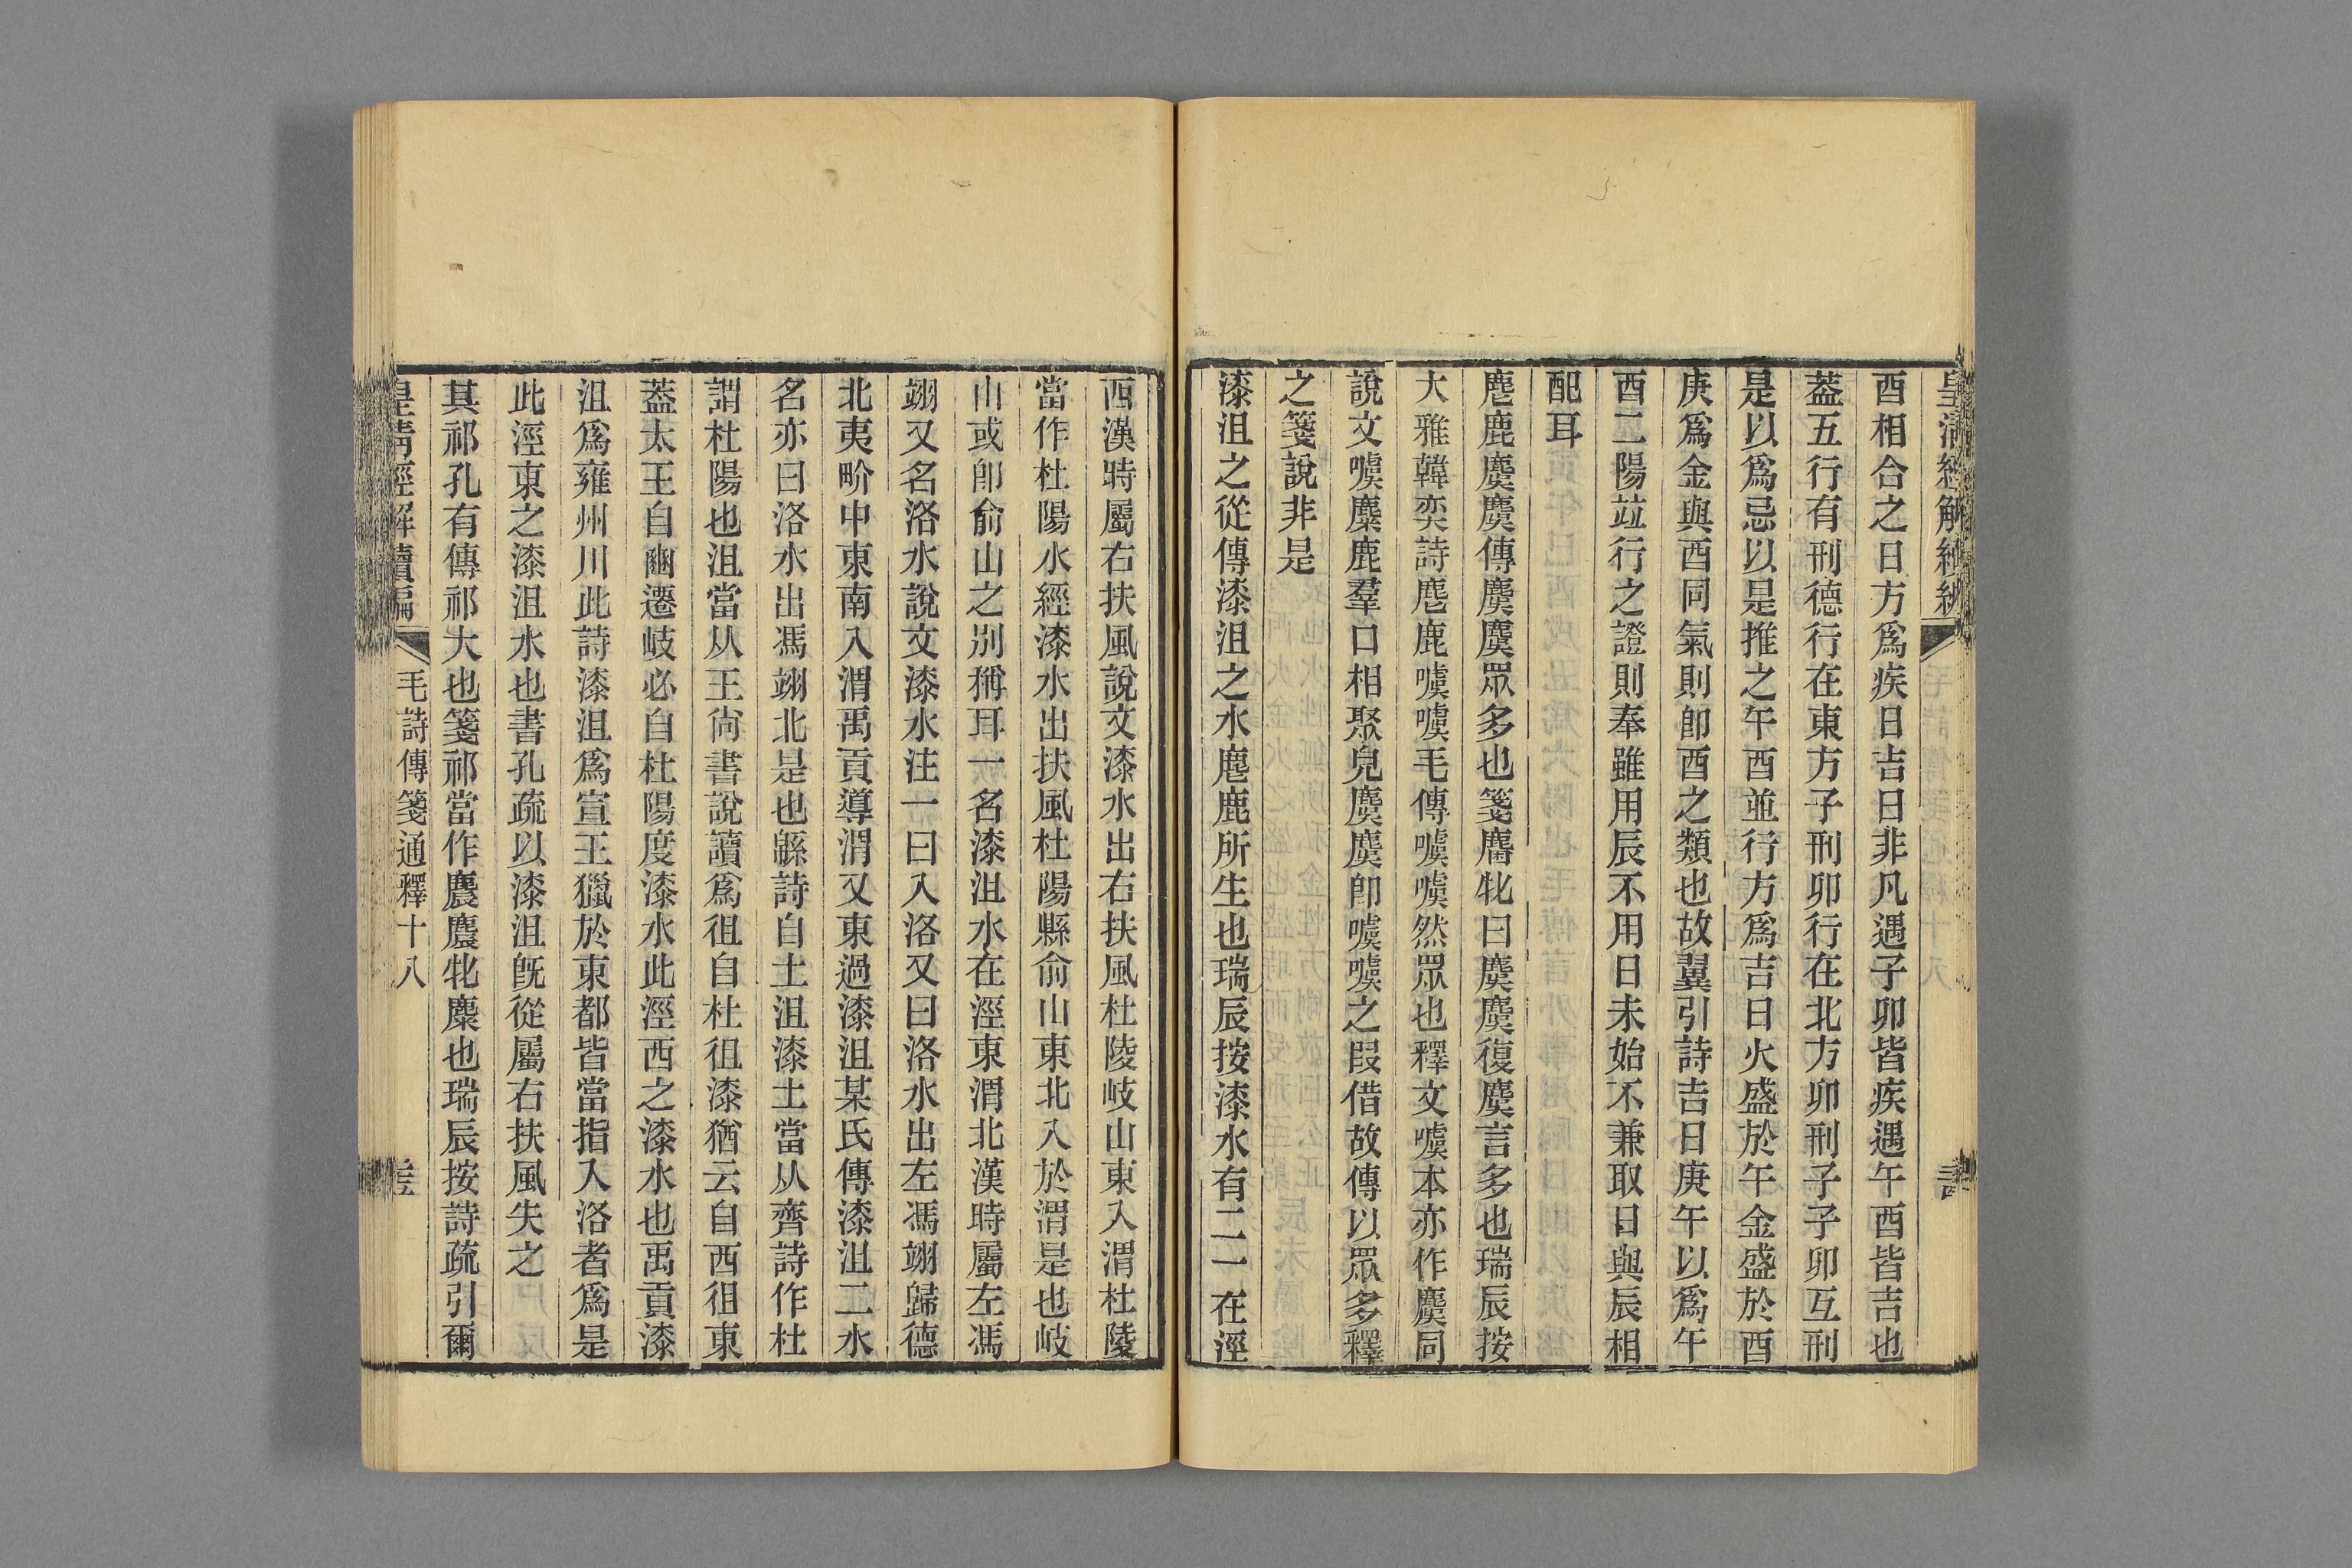 皇清經解續編
酉相合之日方爲疾日吉日非凡遇子卯皆疾遇午酉皆吉也
葢五行有刑德行在東方子刑卯行在北方卯刑子子卯互刑
是以爲忌以是推之午酉並行方爲吉日火盛於午金盛於酉
庚爲金與酉同氣則卽酉之類也故翼引詩吉日庚午以爲午
酉二陽竝行之證則奉雖用辰不用日未始不兼取日與辰相
配耳
麀鹿麌麌傳麌麌眾多也箋麕牝曰麌麌復麌言多也瑞辰按
大雅韓奕詩麀鹿噳噳毛傳噳噳然眾也釋文噳本亦作麌同
說文噳麋鹿羣口相聚皃麌麌卽噳噳之叚借故傳以眾多釋
之箋說非是
漆沮之從傳漆沮之水麀鹿所生也瑞辰按漆水有二一在涇
西漢時屬右扶風說文漆水出右扶風杜陵岐山東入渭杜陵
當作杜陽水經漆水出扶風杜陽縣俞山東北入於渭是也岐
山或卽俞山之別稱耳一名漆沮水在涇東渭北漢時屬左馮
翊又名洛水說文漆水注一曰入洛又曰洛水出左馮翊歸德
北夷畍中東南入渭禹貢導渭又東過漆沮某氏傳漆沮二水
名亦曰洛水出馮翊北是也緜詩自土沮漆土當从齊詩作杜
謂杜陽也沮當从王尙書說讀爲徂自杜徂漆猶云自西徂東
葢太王自豳遷岐必自杜陽度漆水此涇西之漆水也禹貢漆
沮爲雍州川此詩漆沮爲宣王獵於東都皆當指入洛者爲是
此涇東之漆沮水也書孔疏以漆沮旣從屬右扶風失之
其祁孔有傳祁大也箋祁當作麎麎牝麋也瑞辰按詩疏引爾
皇清經解續編 毛詩傳箋通釋十八